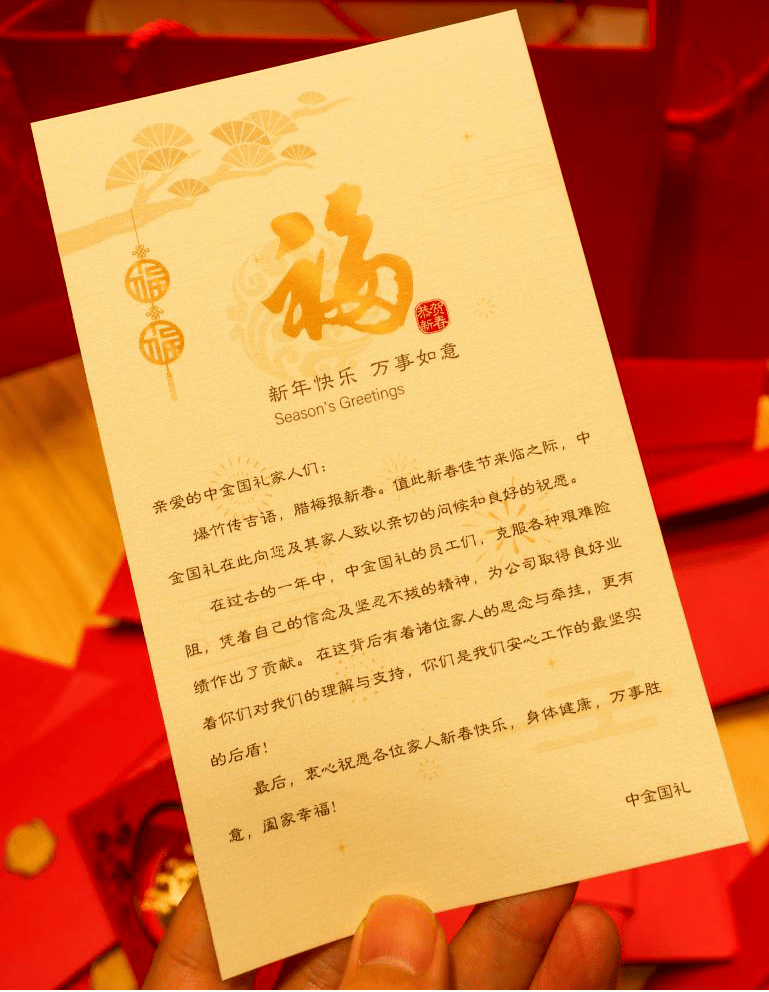 福
福
福
恭贺
新春
新年快乐 万事如意
Season's Greetings
亲爱的中金国礼家人们：
爆竹传吉语，腊梅报新春。值此新春佳节来临之际，中
金国礼在此向您及其家人致以亲切的问候和良好的祝愿。
在过去的一年中，中金国礼的员工们，克服各种艰难险
阻，凭着自己的信念及坚忍不拔的精神，为公司取得良好业
绩作出了贡献。在这背后有着诸位家人的思念与牵挂，更有
着你们对我们的理解与支持，你们是我们安心工作的最坚实
的后盾！
最后，衷心祝愿各位家人新春快乐，身体健康，万事胜
意，阖家幸福！
中金国礼